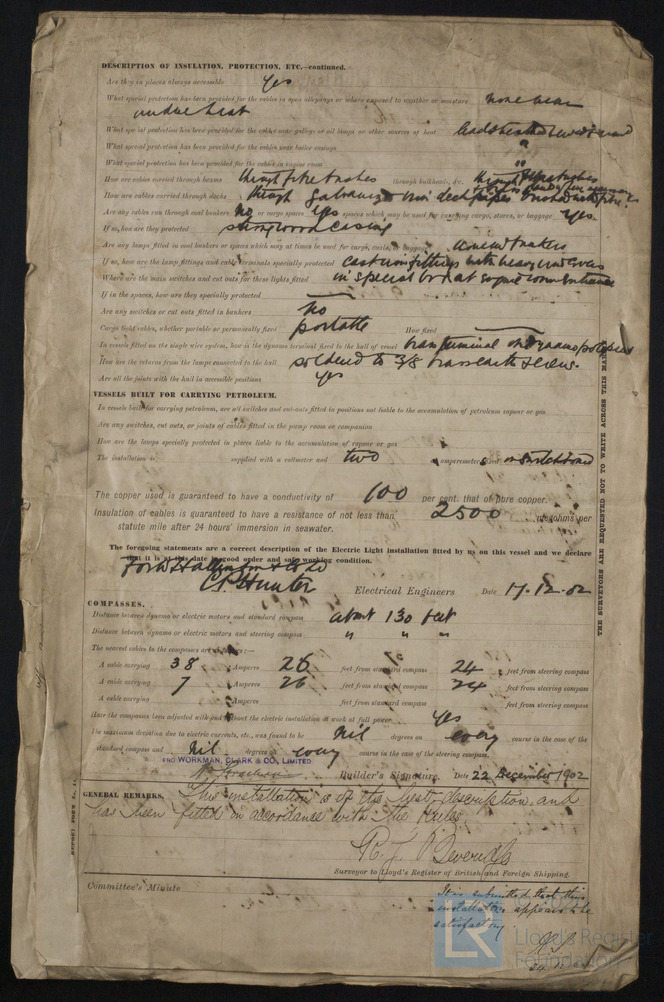 DESCRIPTION OF INSULATION, PROTECTION, ETC.—continued.
Are they in places always accessible Yes
What special protection has been provided for the cables in open alleyways or where exposed to weather or moisture none near
undue heat
What special protection has been provided for the cables near galleys or oil lamps or other sources of heat
What special protection has been provided for the cables near boiler casings
What special protection has been provided for the cables in engine room
How are cables carried through beams through fibre bushes through bulkheads, &c.
How are cables carried through decks through galvanized iron deck pipes
Are any cables run through coal bunkers No or cargo spaces Yes spaces which may be used for carrying cargo, stores, or baggage Yes
If so, how are they protected strong wood casing
Are any lamps fitted in coal bunkers or spaces which may at times be used for cargo, coals, or baggage
If so, how are the lamp fittings and cable terminals specially protected cast iron fittings with heavy
Where are the main switches and cut outs for these lights fitted in special at engine room entrance
If in the spaces, how are they specially protected
Are any switches or cut outs fitted in bunkers No
Cargo light cables, whether portable or permanently fixed portable How fixed
In vessels fitted on the single wire system, how is the dynamo terminal fixed to the hull of vessel
How are the returns from the lamps connected to the hull soldered to 3/8 brass earth screws.
Are all the joints with the hull in accessible positions yes
VESSELS BUILT FOR CARRYING PETROLEUM.
In vessels built for carrying petroleum, are all switches and cut-outs fitted in positions not liable to the accumulation of petroleum vapour or gas
Are any switches, cut outs, or joints of cables fitted in the pump room or companion
How are the lamps specially protected in places liable to the accumulation of vapour or gas
The installation is supplied with a voltmeter and two amperemeters on switchboard
The copper used is guaranteed to have a conductivity of 100 per cent. that of pure copper.
Insulation of cables is guaranteed to have a resistance of not less than 2500 megohms per
statute mile after 24 hours' immersion in seawater.
The foregoing statements are a correct description of the Electric Light installation fitted by us on this vessel and we declare
that it is at this date in good order and safe working condition.
C P Hunter Electrical Engineers Date 17.12.02
COMPASSES.
Distance between dynamo or electric motors and standard compass about 130 feet
Distance between dynamo or electric motors and steering compass " " "
The nearest cables to the compasses are as follows:—
A cable carrying 38 Amperes 26 feet from standard compass 24 feet from steering compass
A cable carrying 7 Amperes 26 feet from standard compass 24 feet from steering compass
A cable carrying Amperes feet from standard compass feet from steering compass
Have the compasses been adjusted with and without the electric installation at work at full power yes
The maximum deviation due to electric currents, etc., was found to be Nil degrees on every course in the case of the
standard compass and Nil degrees on every course in the case of the steering compass.
PRO WORKMAN, CLARK & CO., LIMITED
Builder's Signature. Date 22 December 1902
GENERAL REMARKS. This installation is of the best description and
has been fitted in accordance with the Rules.
Surveyor to Lloyd's Register of British and Foreign Shipping.
Committee's Minute
It is submitted that this
installation appears to be
satisfactory
THE SURVEYORS ARE REQUESTED NOT TO WRITE ACROSS THIS MARGIN
LR Lloyd's Register
Foundation